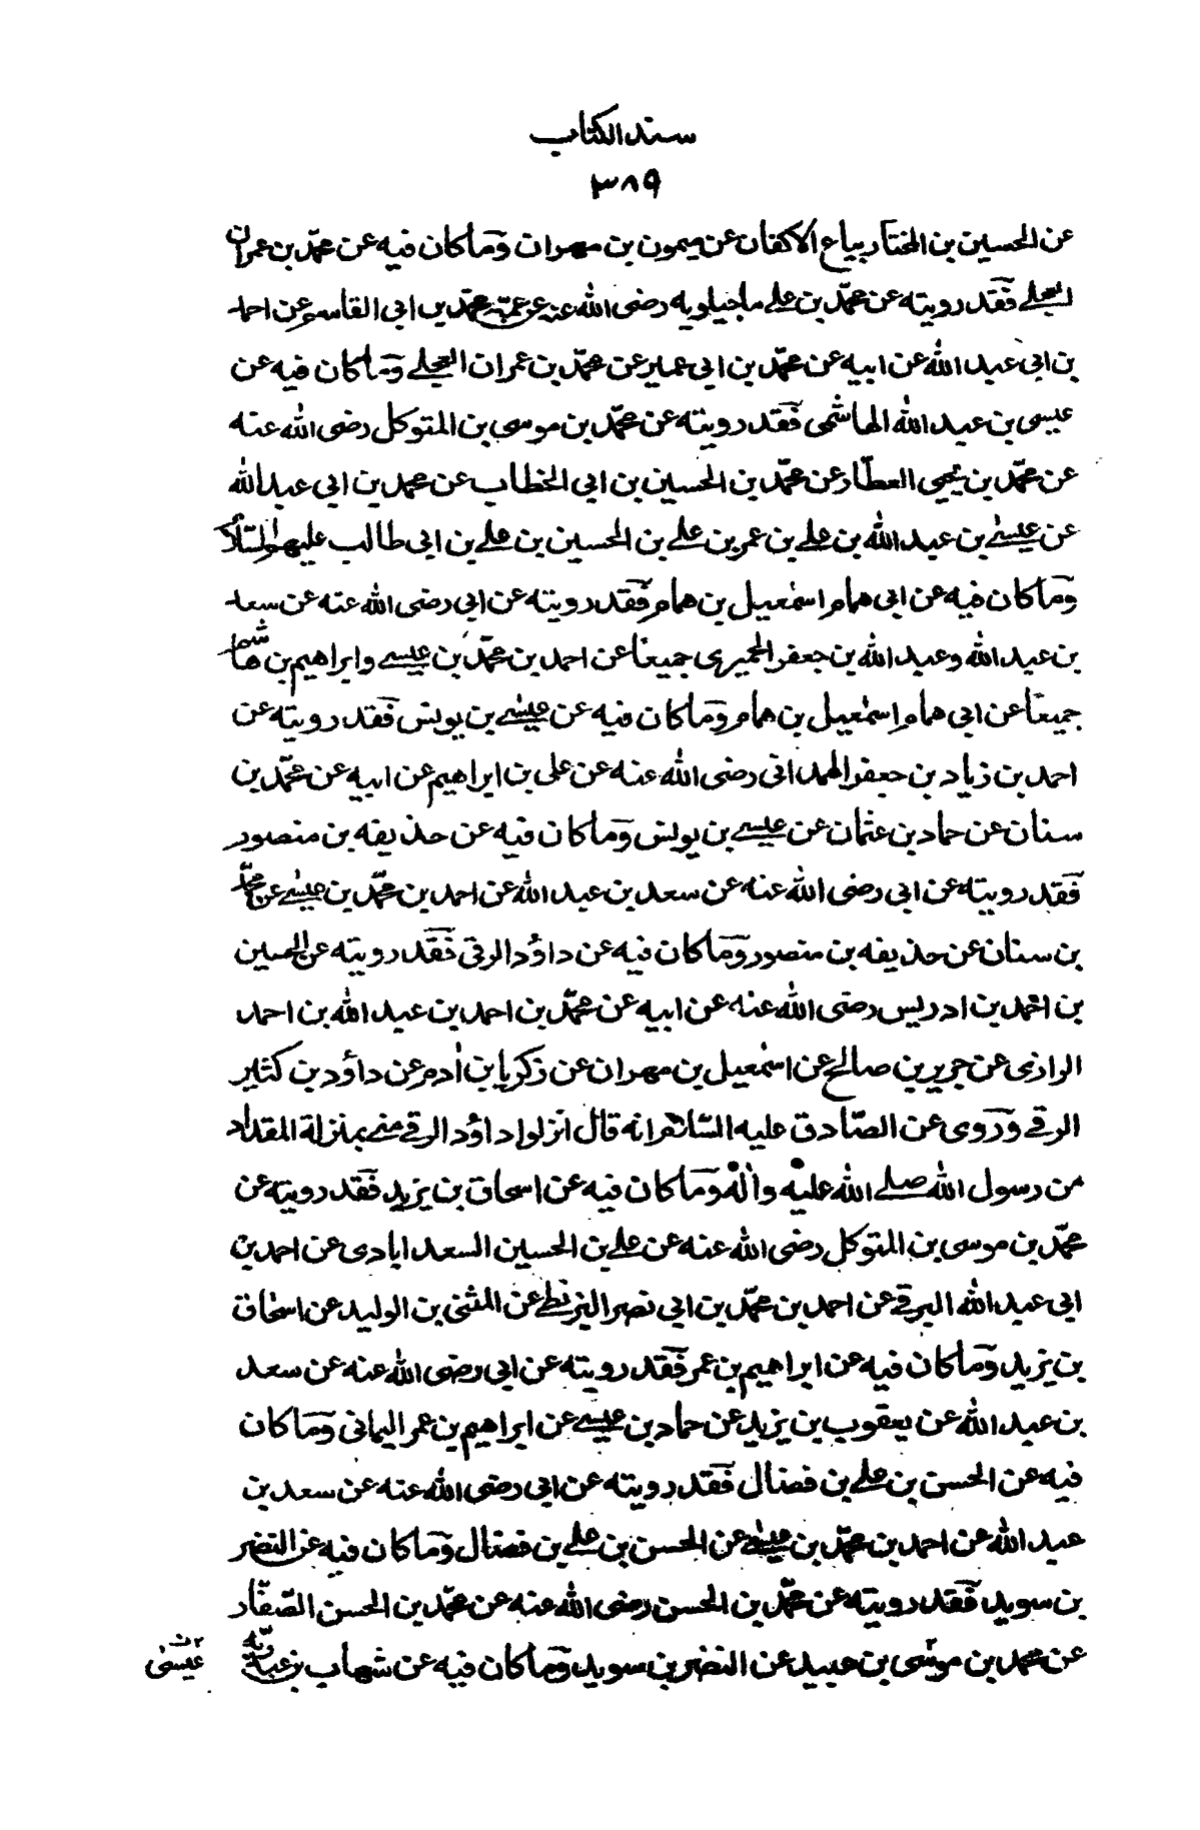 سند الكتاب
٣٨٩
عن الحسين بن المختار بياع الاكفان عن ميمون بن مهران وما كان فيه عن محمّد بن عمران
العجلے فقد رويته عن محمّد بن علے ماجيلويه رضى الله عنه عن عمّه محمّد بن ابى القاسم عن احمد
بن ابى عبد الله عن ابيه عن محمّد بن ابى عمير عن محمّد بن عمران العجلے وما كان فيه عن
عيسى بن عبد الله الهاشمى فقد رويته عن محمّد بن موسى بن المتوكل رضى الله عنه
عن محمّد بن يحيى العطّار عن محمّد بن الحسين بن ابى الخطاب عن محمد بن ابى عبد الله
عن عيسے بن عبد الله بن علے بن عمر بن علے بن الحسين بن علے بن ابى طالب عليهم السّلام
وما كان فيه عن ابى همام اسمٰعيل بن همام فقد رويته عن ابى رضى الله عنه عن سعد
بن عبد الله وعبد الله بن جعفر الحميرى جميعًا عن احمد بن محمّد بن عيسے وابراهيم بن هاشم
جميعًا عن ابى همام اسمٰعيل بن همام وما كان فيه عن عيسٰے بن يونس فقد رويته عن
احمد بن زياد بن جعفر الهمدانى رضى الله عنه عن على بن ابراهيم عن ابيه عن محمّد بن
سنان عن حماد بن عثمان عن عيسے بن يونس وما كان فيه عن حذيفه بن منصور
فقد رويته عن ابى رضى الله عنه عن سعد بن عبد الله عن احمد بن محمّد بن عيسٰے عن محمّد
بن سنان عن حذيفه بن منصور وما كان فيه عن داؤد الرقى فقد رويته عن الحسين
بن احمد بن ادريس رضى الله عنه عن ابيه عن محمّد بن احمد بن عبد الله بن احمد
الرازى عن جرير بن صالح عن اسمٰعيل بن مهران عن زكريا بن اٰدم عن داؤد بن كثير
الرقے وروى عن الصّادق عليه السّلام انه قال انزلوا داؤد الرقے منے بمنزلة المقداد
من رسول الله صلے الله عليه واٰله وما كان فيه عن اسحاق بن يزيد فقد رويته عن
محمّد بن موسى بن المتوكل رضى الله عنه عن علے بن الحسين السعد ابادى عن احمد بن
ابى عبد الله البرقے عن احمد بن محمّد بن ابى نصر البزنطے عن المثنى بن الوليد عن اسحٰاق
بن يزيد وما كان فيه عن ابراهيم بن عمر فقد رويته عن ابى رضى الله عنه عن سعد
بن عبد الله عن يعقوب بن يزيد عن حماد بن عيسے عن ابراهيم بن عمر اليمانى وما كان
فيه عن الحسن بن علے بن فضال فقد رويته عن ابى رضى الله عنه عن سعد بن
عبد الله عن احمد بن محمّد بن عيسٰے عن الحسن بن علے بن فضال وما كان فيه عن النضر
بن سويد فقد رويته عن محمّد بن الحسن رضى الله عنه عن محمّد بن الحسن الصّفّار
عن محمد بن موسٰى بن عبيد عن النضر بن سويد وما كان فيه عن شهاب بن عبد ربّه
عيسٰى ن